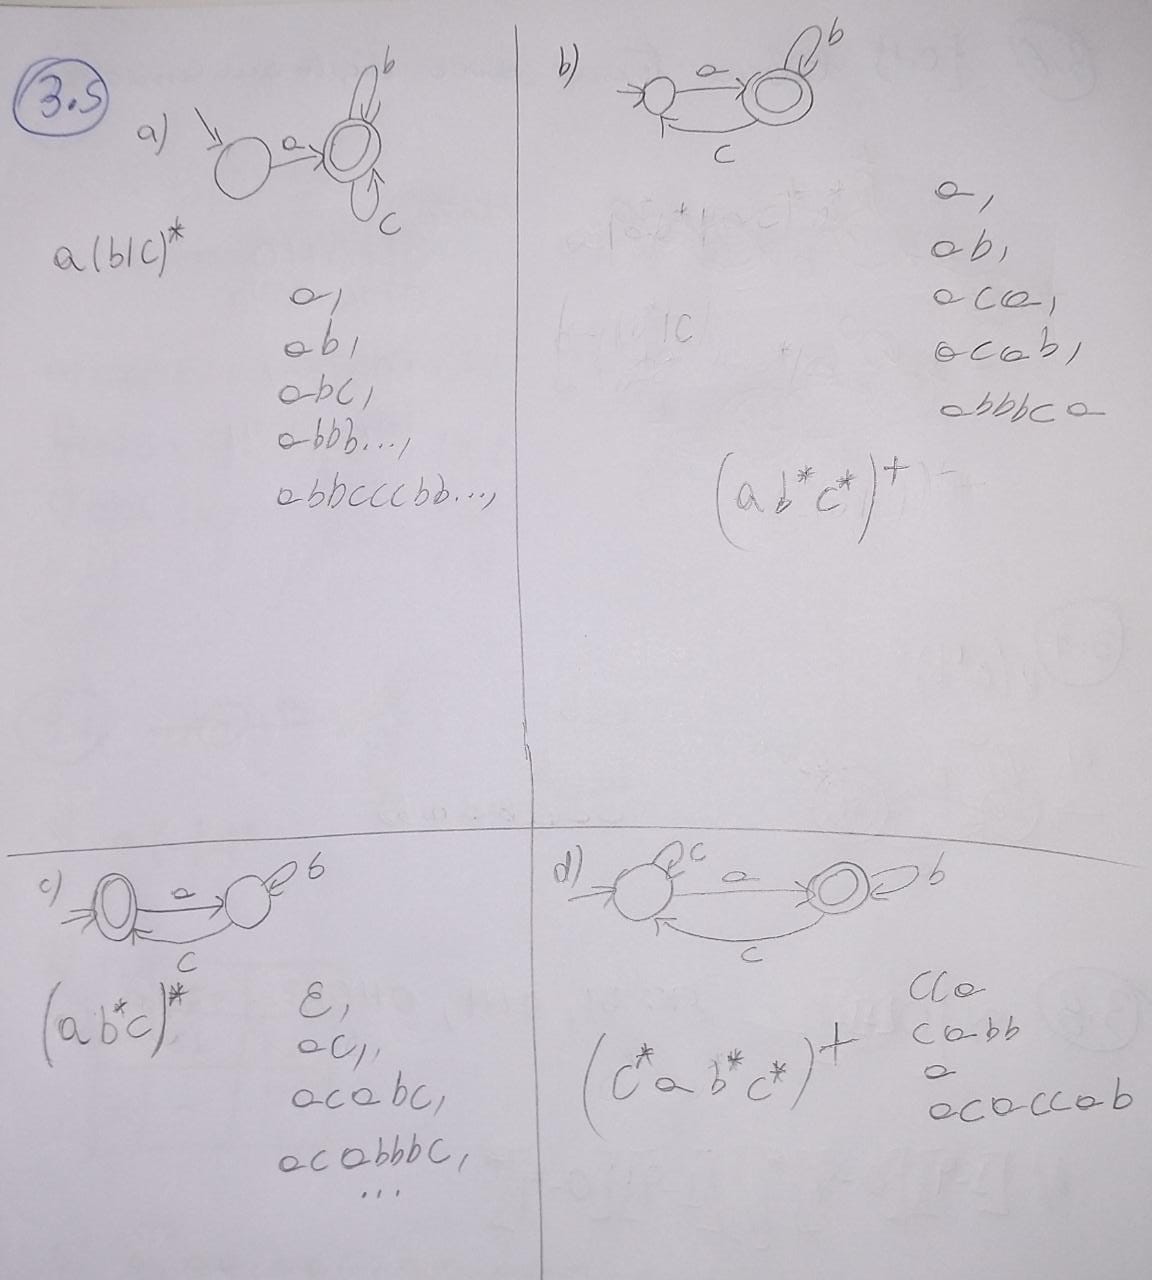 3.5
a)
b
a
c
a(b|c)*
a,
ab,
abc,
abbb...,
abbcccbb...,
b)
b
a
c
a,
ab,
aca,
acab,
abbbca
(ab*c*)+
c)
a
b
c
(ab*c)*
ε,
ac,,
acabc,
acabbbc,
...
d)
c
a
b
c
(c*ab*c*)+
cca
cabb
a
acaccab